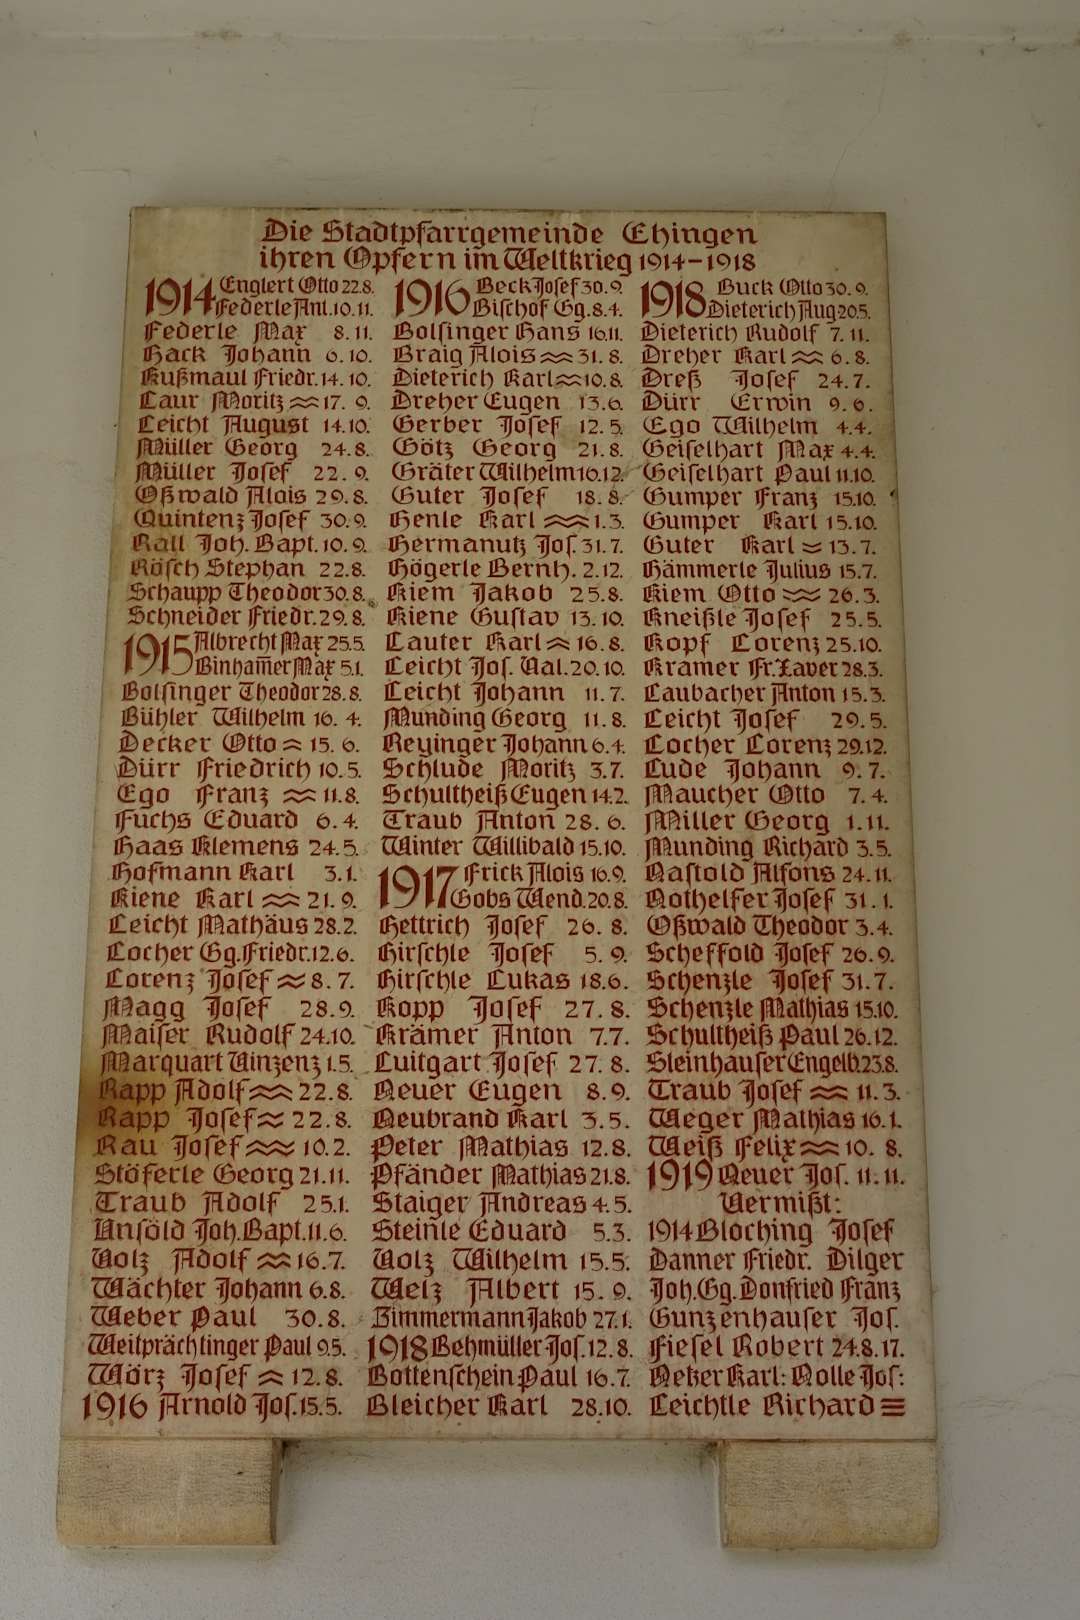 Die Stadtpfarrgemeinde Ehingen
ihren Opfern im Weltkrieg 1914–1918
1914 Englert Otto 22.8.
Federle Ant. 10.11.
Federle Max 8.11.
Hack Johann 6.10.
Kußmaul Friedr. 14.10.
Laur Moritz 17.9.
Leicht August 14.10.
Müller Georg 24.8.
Müller Josef 22.9.
Oßwald Alois 29.8.
Quintenz Josef 30.9.
Rall Joh. Bapt. 10.9.
Rösch Stephan 22.8.
Schaupp Theodor 30.8.
Schneider Friedr. 29.8.
1915 Albrecht Max 25.5.
Binham̅er Max 5.1.
Bolsinger Theodor 28.8.
Bühler Wilhelm 16.4.
Decker Otto 15.6.
Dürr Friedrich 10.5.
Ego Franz 11.8.
Fuchs Eduard 6.4.
Haas Klemens 24.5.
Hofmann Karl 3.1.
Kiene Karl 21.9.
Leicht Mathäus 28.2.
Locher Gg. Friedr. 12.6.
Lorenz Josef 8.7.
Magg Josef 28.9.
Maiser Rudolf 24.10.
Marquart Vinzenz 1.5.
Rapp Adolf 22.8.
Rapp Josef 22.8.
Rau Josef 10.2.
Stöferle Georg 21.11.
Traub Adolf 25.1.
Unsöld Joh. Bapt. 11.6.
Volz Adolf 16.7.
Wächter Johann 6.8.
Weber Paul 30.8.
Weitprächtinger Paul 9.5.
Wörz Josef 12.8.
1916 Arnold Jos. 15.5.
1916 Beck Josef 30.9.
Bischof Gg. 8.4.
Bolsinger Hans 16.11.
Braig Alois 31.8.
Dieterich Karl 10.8.
Dreher Eugen 13.6.
Gerber Josef 12.5.
Götz Georg 21.8.
Gräter Wilhelm 16.12.
Guter Josef 18.8.
Henle Karl 1.3.
Hermanutz Jos. 31.7.
Högerle Bernh. 2.12.
Kiem Jakob 25.8.
Kiene Gustav 13.10.
Lauter Karl 16.8.
Leicht Jos. Val. 20.10.
Leicht Johann 11.7.
Munding Georg 11.8.
Reyinger Johann 6.4.
Schlude Moritz 3.7.
Schultheiß Eugen 14.2.
Traub Anton 28.6.
Winter Willibald 15.10.
1917 Frick Alois 16.9.
Gobs Wend. 20.8.
Hettrich Josef 26.8.
Hirschle Josef 5.9.
Hirschle Lukas 18.6.
Kopp Josef 27.8.
Krämer Anton 7.7.
Luitgart Josef 27.8.
Neuer Eugen 8.9.
Neubrand Karl 3.5.
Peter Mathias 12.8.
Pfänder Mathias 21.8.
Staiger Andreas 4.5.
Stein̅le Eduard 5.3.
Volz Wilhelm 15.5.
Welz Albert 15.9.
Zimmermann Jakob 27.1.
1918 Behmüller Jos. 12.8.
Bottenschein Paul 16.7.
Bleicher Karl 28.10.
1918 Buck Otto 30.9.
Dieterich Aug 20.5.
Dieterich Rudolf 7.11.
Dreher Karl 6.8.
Dreß Josef 24.7.
Dürr Erwin 9.6.
Ego Wilhelm 4.4.
Geiselhart Max 4.4.
Geiselhart Paul 11.10.
Gumper Franz 15.10.
Gumper Karl 15.10.
Guter Karl 13.7.
Hämmerle Julius 15.7.
Kiem Otto 26.3.
Kneißle Josef 25.5.
Kopf Lorenz 25.10.
Kramer Fr. Xaver 28.3.
Laubacher Anton 15.3.
Leicht Josef 29.5.
Locher Lorenz 29.12.
Lude Johann 9.7.
Maucher Otto 7.4.
Miller Georg 1.11.
Munding Richard 3.5.
Nastold Alfons 24.11.
Nothelfer Josef 31.1.
Oßwald Theodor 3.4.
Scheffold Josef 26.9.
Schenzle Josef 31.7.
Schenzle Mathias 15.10.
Schultheiß Paul 26.12.
Steinhauser Engelb. 23.8.
Traub Josef 11.3.
Weger Mathias 16.1.
Weiß Felix 10.8.
1919 Neuer Jos. 11.11.
Vermißt:
1914 Bloching Josef
Danner Friedr. Dilger
Joh. Gg. Donfried Franz
Gunzenhauser Jos.
Fiesel Robert 24.8.17.
Netzer Karl: Nolle Jos:
Leichtle Richard